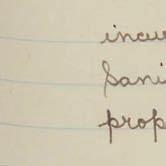 incu
Sani
prop